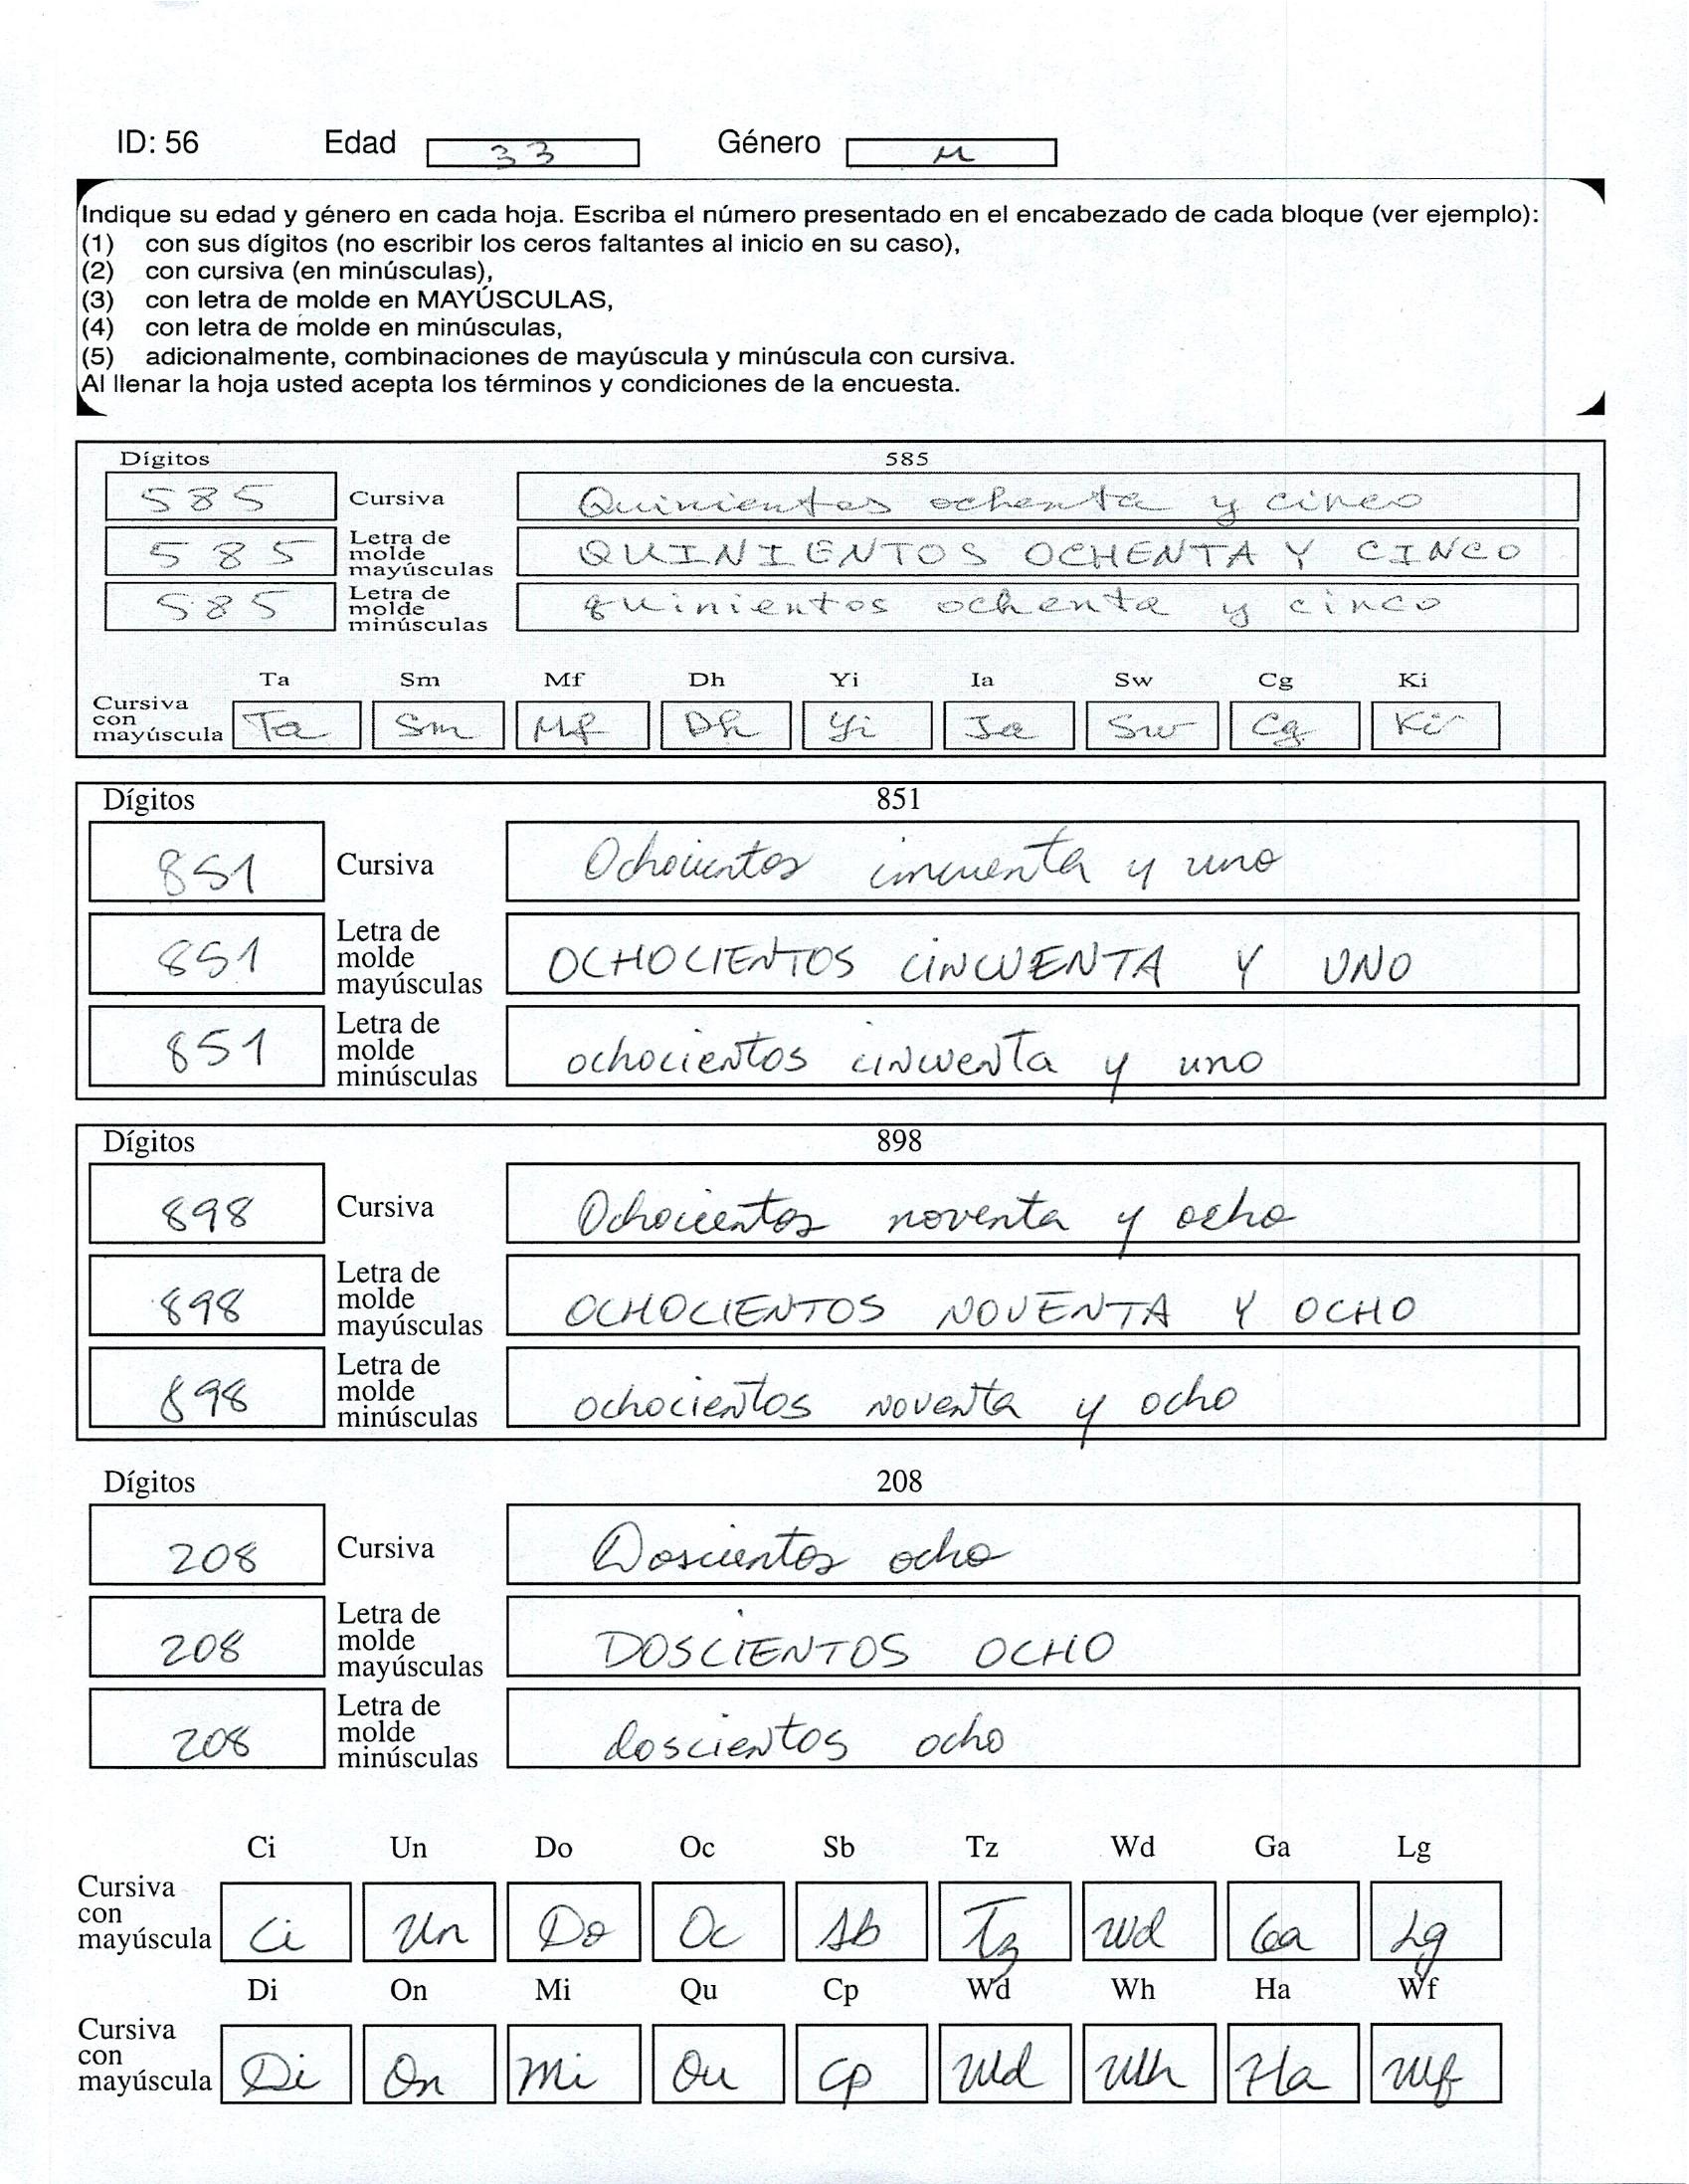 ID: 56 Edad 33 Género M
Indique su edad y género en cada hoja. Escriba el número presentado en el encabezado de cada bloque (ver ejemplo):
(1) con sus dígitos (no escribir los ceros faltantes al inicio en su caso),
(2) con cursiva (en minúsculas),
(3) con letra de molde en MAYÚSCULAS,
(4) con letra de molde en minúsculas,
(5) adicionalmente, combinaciones de mayúscula y minúscula con cursiva.
Al llenar la hoja usted acepta los términos y condiciones de la encuesta.
Dígitos 585
585 Cursiva Quinientos ochenta y cinco
585 Letra de molde mayúsculas QUINIENTOS OCHENTA Y CINCO
585 Letra de molde minúsculas quinientos ochenta y cinco
Ta Sm Mf Dh Yi Ia Sw Cg Ki
Cursiva con mayúscula Ta Sm Mf Dh Yi Ia Sw Cg Ki
Dígitos 851
851 Cursiva Ochocientos cincuenta y uno
851 Letra de molde mayúsculas OCHOCIENTOS CINCUENTA Y UNO
851 Letra de molde minúsculas ochocientos cincuenta y uno
Dígitos 898
898 Cursiva Ochocientos noventa y ocho
898 Letra de molde mayúsculas OCHOCIENTOS NOVENTA Y OCHO
898 Letra de molde minúsculas ochocientos noventa y ocho
Dígitos 208
208 Cursiva Doscientos ocho
208 Letra de molde mayúsculas DOSCIENTOS OCHO
208 Letra de molde minúsculas doscientos ocho
Ci Un Do Oc Sb Tz Wd Ga Lg
Cursiva con mayúscula Ci Un Do Oc Sb Tz Wd Ga Lg
Di On Mi Qu Cp Wd Wh Ha Wf
Cursiva con mayúscula Di On Mi Ou Cp Wd Wh Ha Wf